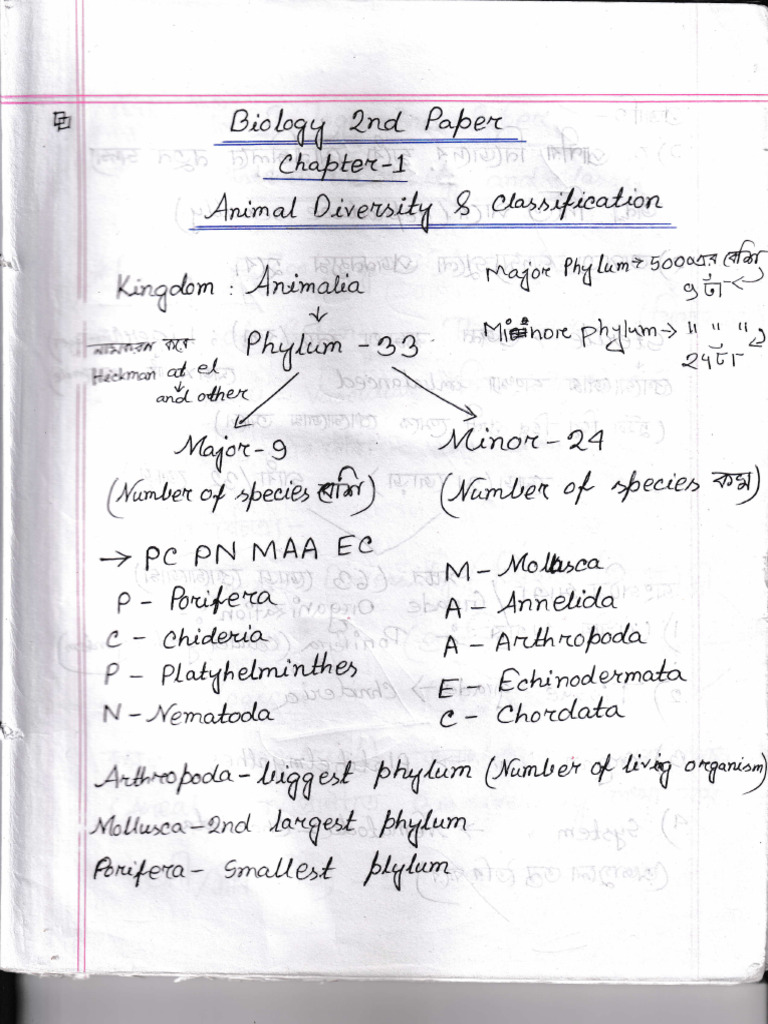 Biology 2nd Paper
Chapter-1
Animal Diversity & Classification
Kingdom : Animalia
Major Phylum → 5000 এর বেশি
9 টা
↓
Phylum - 33
Minore phylum → " " "
24টা
নামকরণ করে
Hickman at el
↓
and other
Major - 9
Minor - 24
(Number of species বেশি)
(Number of species কম)
→ PC PN MAA EC
P - Porifera
C - Chideria
P - Platyhelminthes
N - Nematoda
M - Mollusca
A - Annelida
A - Arthropoda
E - Echinodermata
C - Chordata
Arthropoda - biggest phylum (Number of livig organism)
Mollusca - 2nd largest phylum
Porifera - Smallest plylum